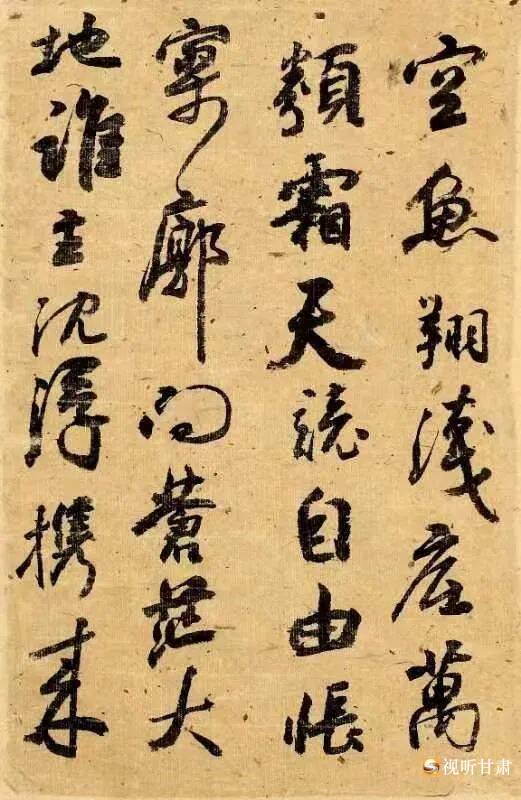 空魚翔淺底萬
類霜天競自由悵
寥廓問蒼茫大
地誰主沈浮携來
视听甘肃